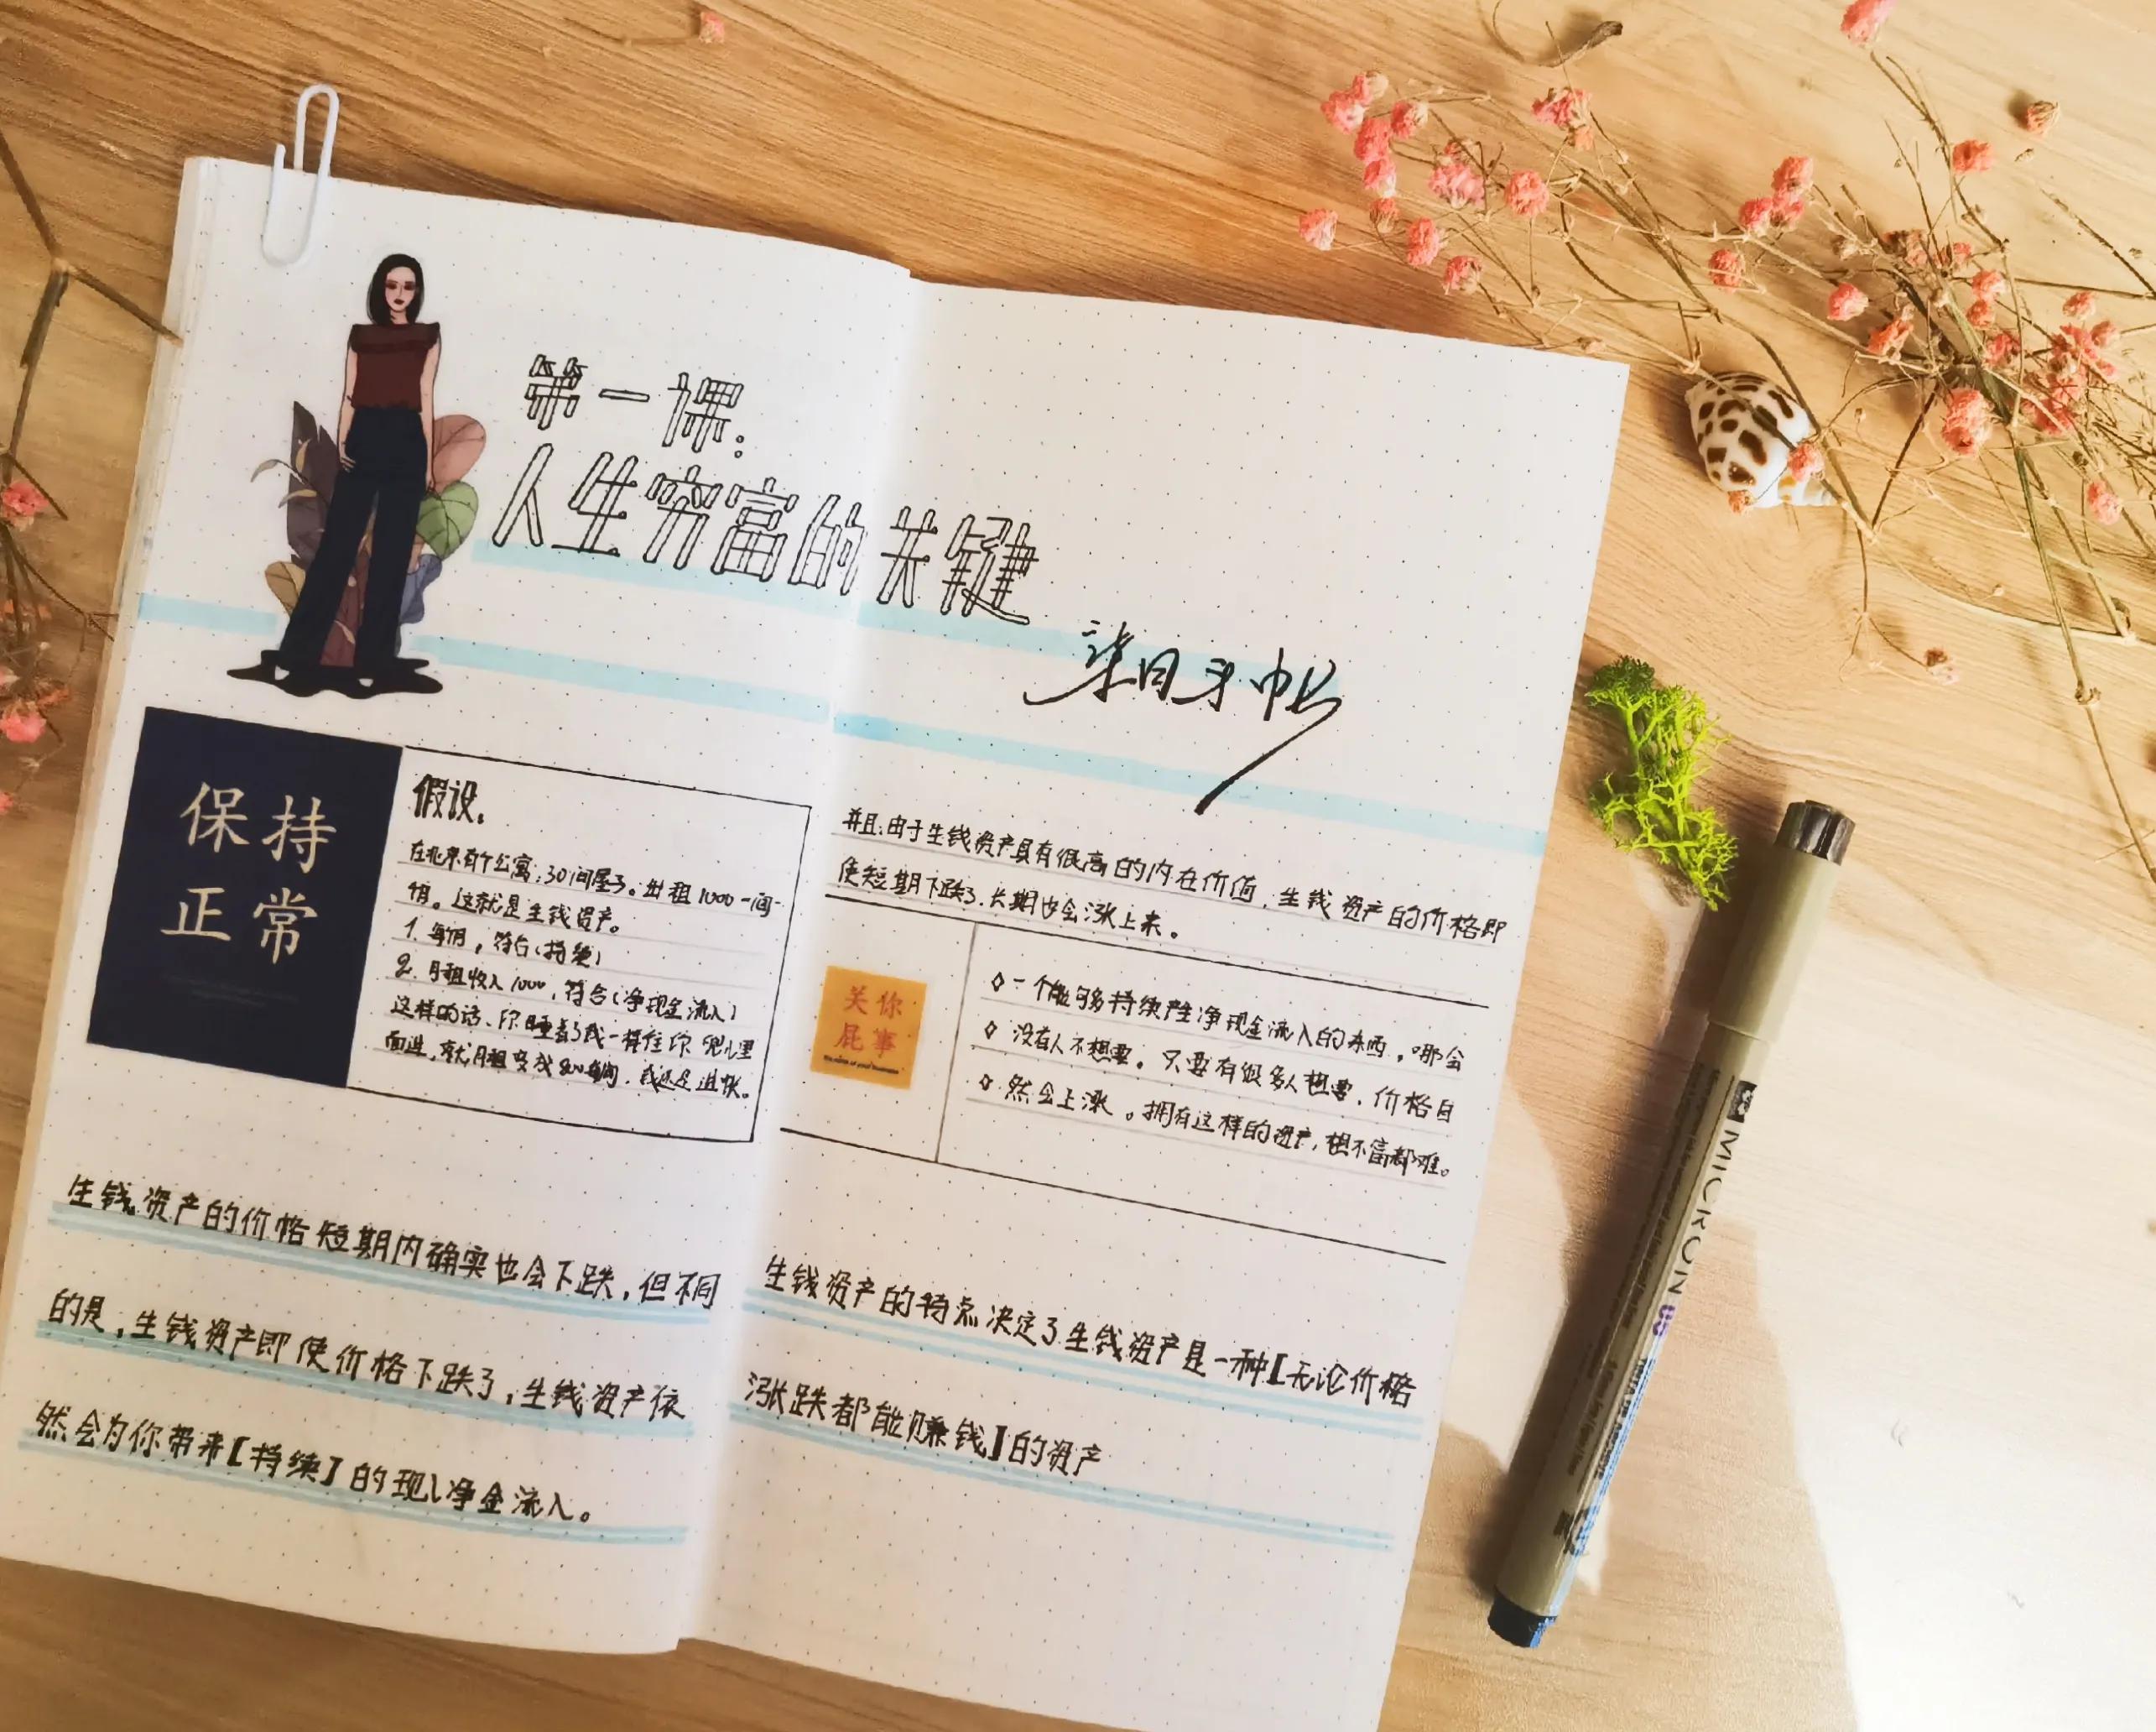 第一课:
人生穷富的关键
柒月手帐
保持
正常
假设.
在北京有个公寓,30间屋子。出租1000一间
月。这就是生钱资产。
1. 每月,符合(持续)
2. 月租收入1000,符合(净现金流入)
这样的话、你睡着了钱一样往你兜儿里
面进,就月租变成800每间,
生钱资产的价格短期内确实也会下跌,但不同
的是,生钱资产即使价格下跌了,生钱资产依
然会为你带来【持续】的现净金流入。
并且,由于生钱资产具有很高的内在价值,生钱资产的价格即
使短期下跌了,长期也会涨上来。
关你
屁事
◇一个能够持续产生净现金流入的东西,哪会
◇没有人不想要。只要有很多人想要,价格自
◇然会上涨。拥有这样的资产,想不富都难。
生钱资产的特点决定了生钱资产是一种【无论价格
涨跌都能赚钱】的资产
MICRON 03